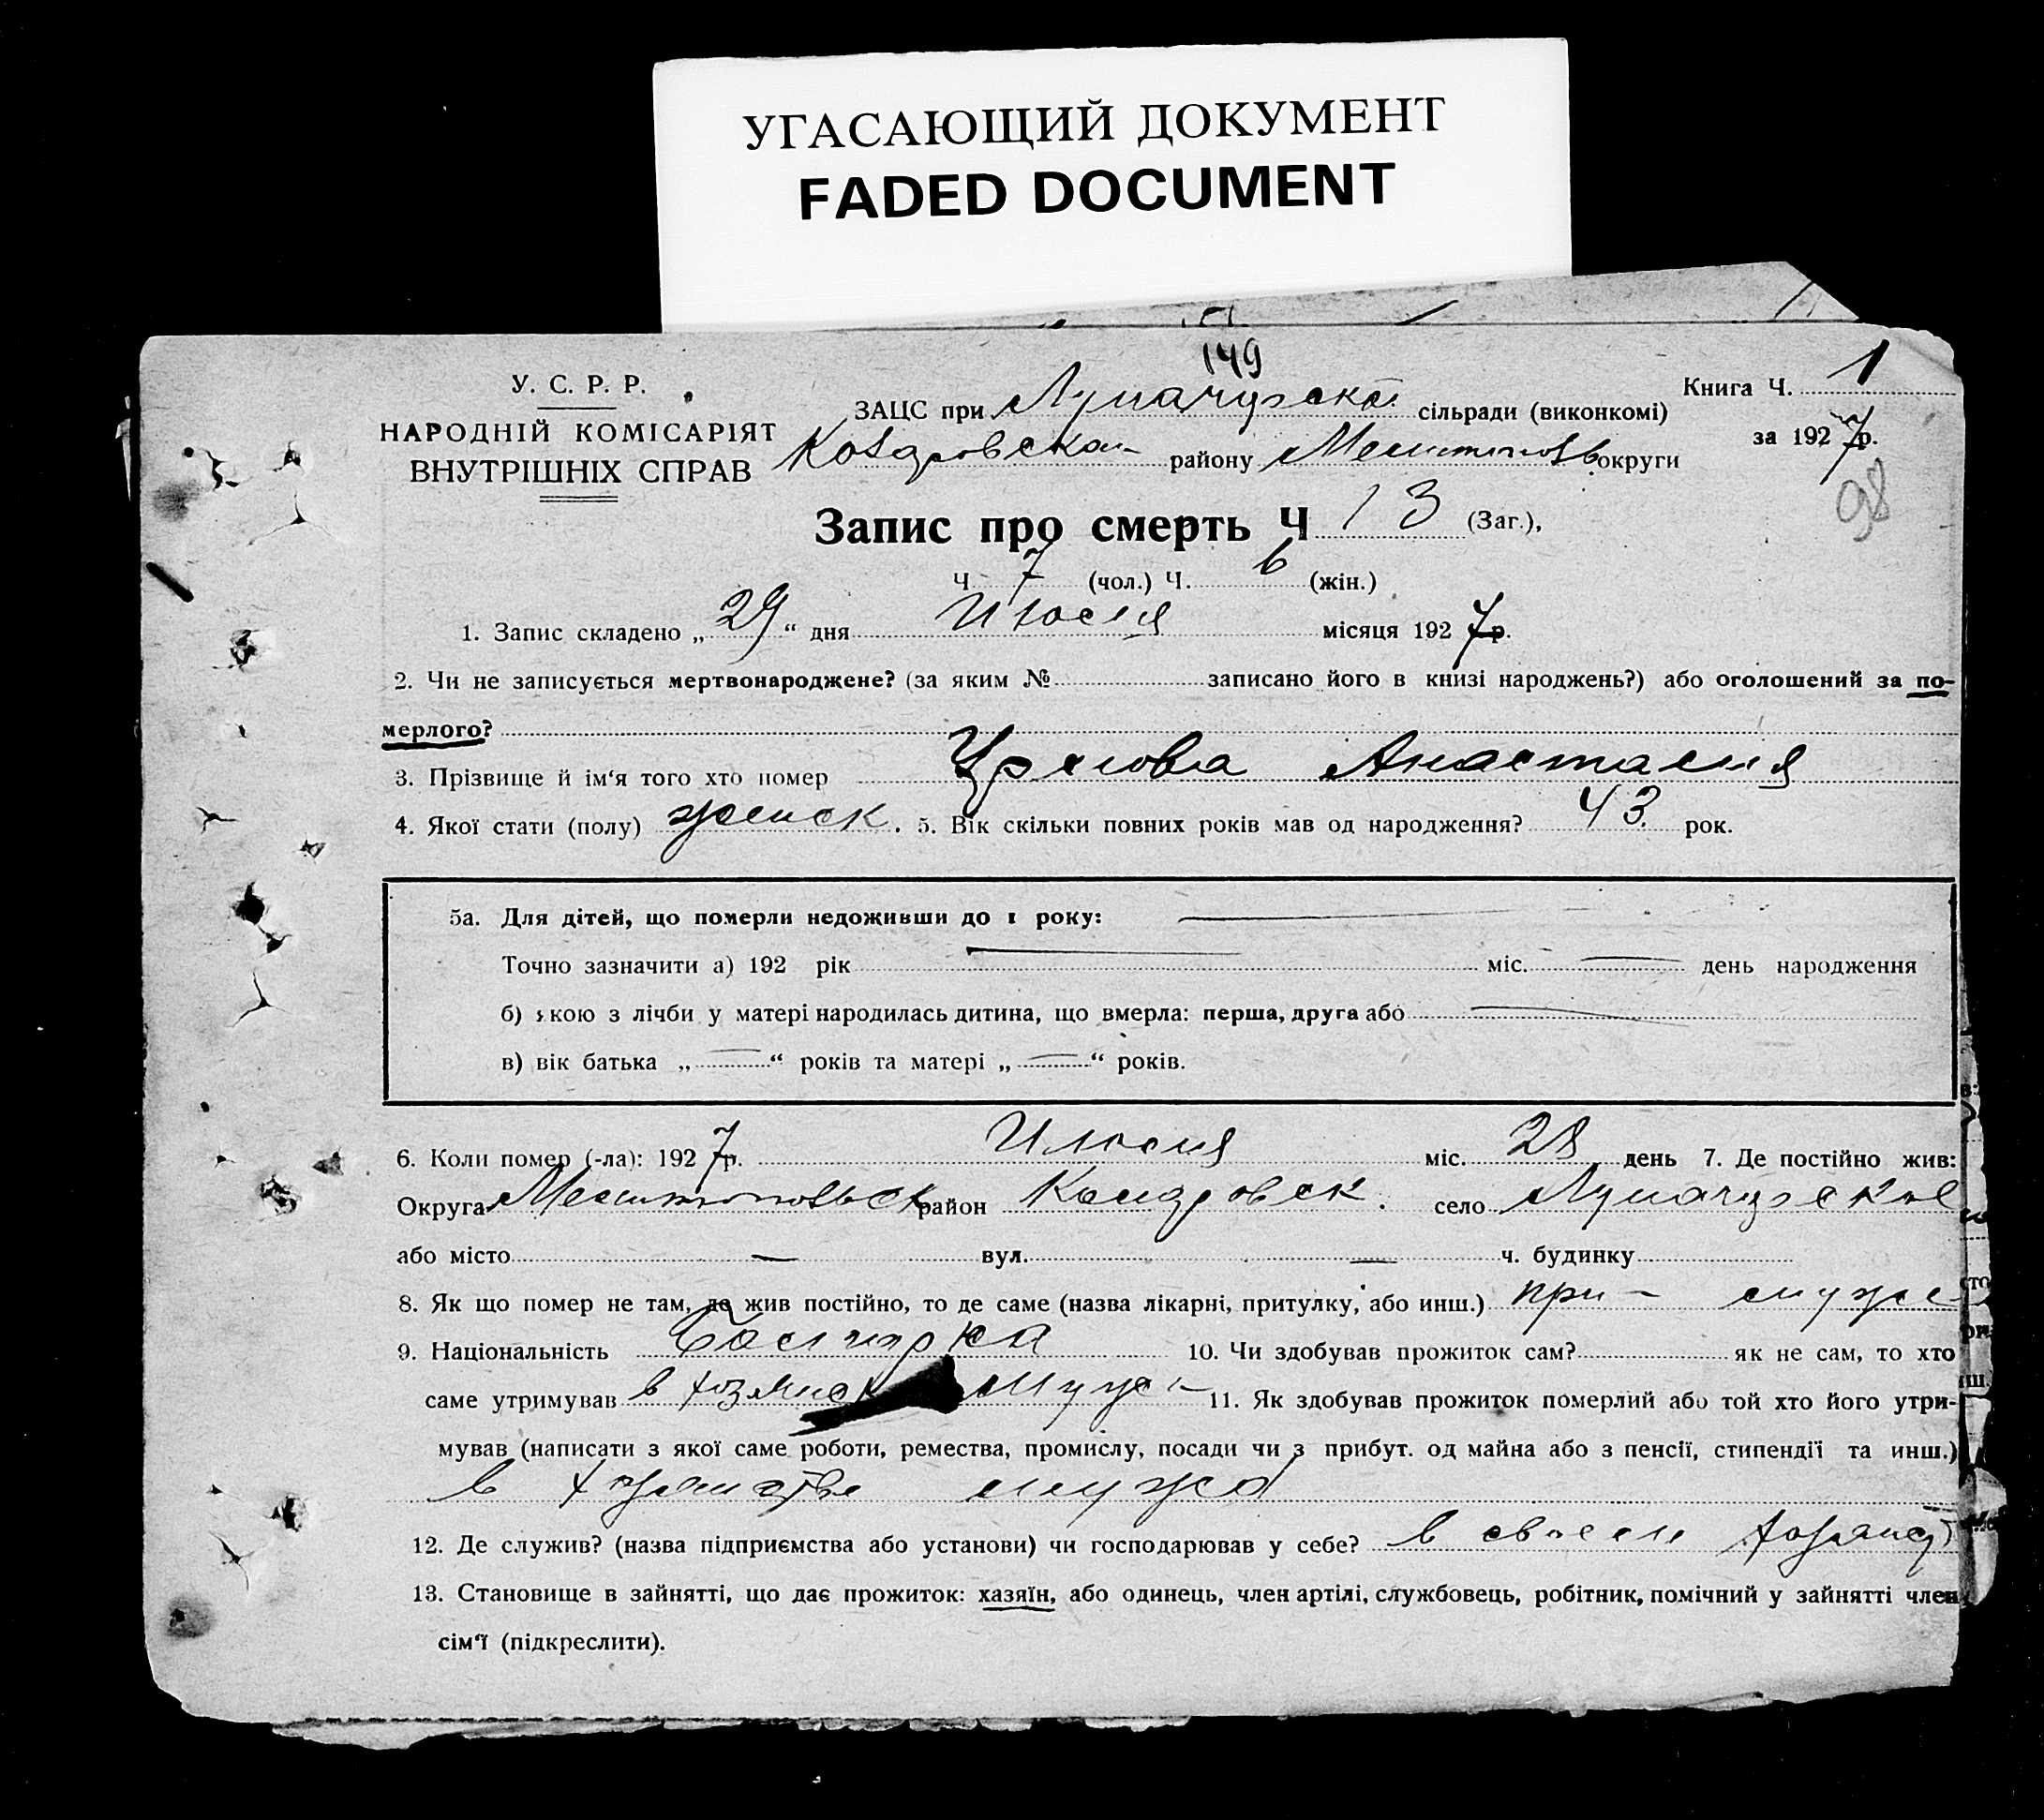 УГАСАЮЩИЙ ДОКУМЕНТ
FADED DOCUMENT
149
У. С. Р. Р.
НАРОДНІЙ КОМІСАРІЯТ
ВНУТРІШНІХ СПРАВ
Книга Ч. 1
за 1927 р.
98
ЗАЦС при сільради (виконкомі)
району округи
Запис про смерть Ч 13 (Заг.),
Ч 7 (чол.) Ч. 6 (жін.)
1. Запис складено „ 29 “ дня Июля місяця 1927 р.
2. Чи не записується мертвонароджене? (за яким № записано його в книзі народжень?) або оголошений за по-
мерлого?
3. Прізвище й ім‘я того хто помер Анастасия
4. Якої стати (полу) женск. 5. Вік скільки повних років мав од народження? 43 рок.
5а. Для дітей, що померли недоживши до 1 року: —
Точно зазначити а) 192 рік — міс. — день народження
б) якою з лічби у матері народилась дитина, що вмерла: перша, друга або —
в) вік батька „ — “ років та матері „ — “ років.
6. Коли помер (-ла): 1927 р. Июля міс. 28 день 7. Де постійно жив:
Округа район село
або місто — вул. — ч. будинку
8. Як що помер не там, де жив постійно, то де саме (назва лікарні, притулку, або инш.) при — муже
9. Національність Болгарка 10. Чи здобував прожиток сам? як не сам, то хто
саме утримував в 11. Як здобував прожиток померлий або той хто його утри-
мував (написати з якої саме роботи, ремества, промислу, посади чи з прибут. од майна або з пенсії, стипендії та инш.)
в хозяистве мужа
12. Де служив? (назва підприємства або установи) чи господарював у себе? в своем хозяист
13. Становище в зайнятті, що дає прожиток: хазяїн, або одинець, член артілі, службовець, робітник, помічний у зайнятті член
сім‘ї (підкреслити).